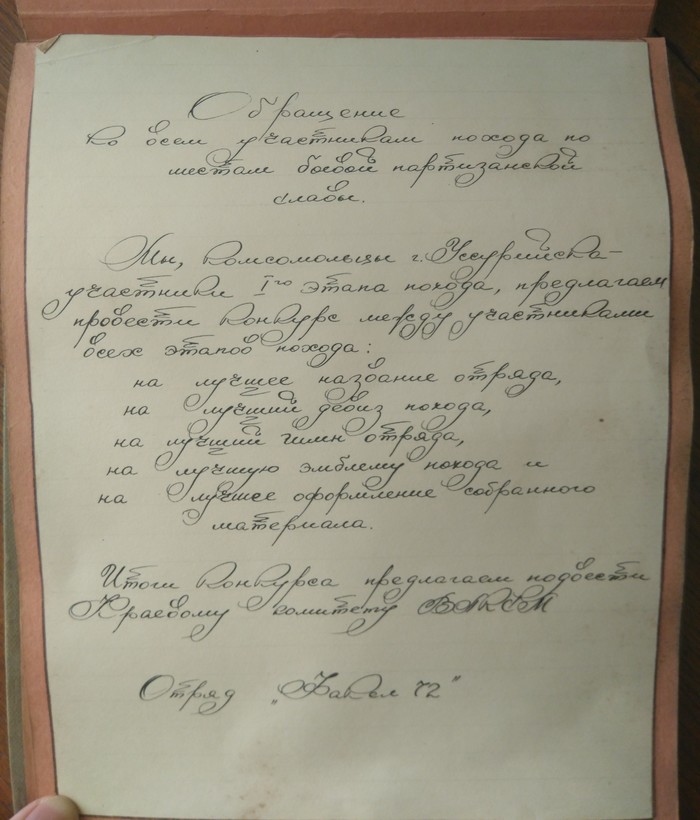 Обращение
ко всем участникам похода по
местам боевой партизанской
славы.
Мы, комсомольцы г. Уссурийска-
участники I го этапа похода, предлагаем
провести конкурс между участниками
всех этапов похода:
на лучшее название отряда,
на лучший девиз похода,
на лучший гимн отряда,
на лучшую эмблему похода и
на лучшее оформление собранного
материала.
Итоги конкурса предлагаем подвести
Краевому комитету ВЛКСМ
Отряд „Факел 72"